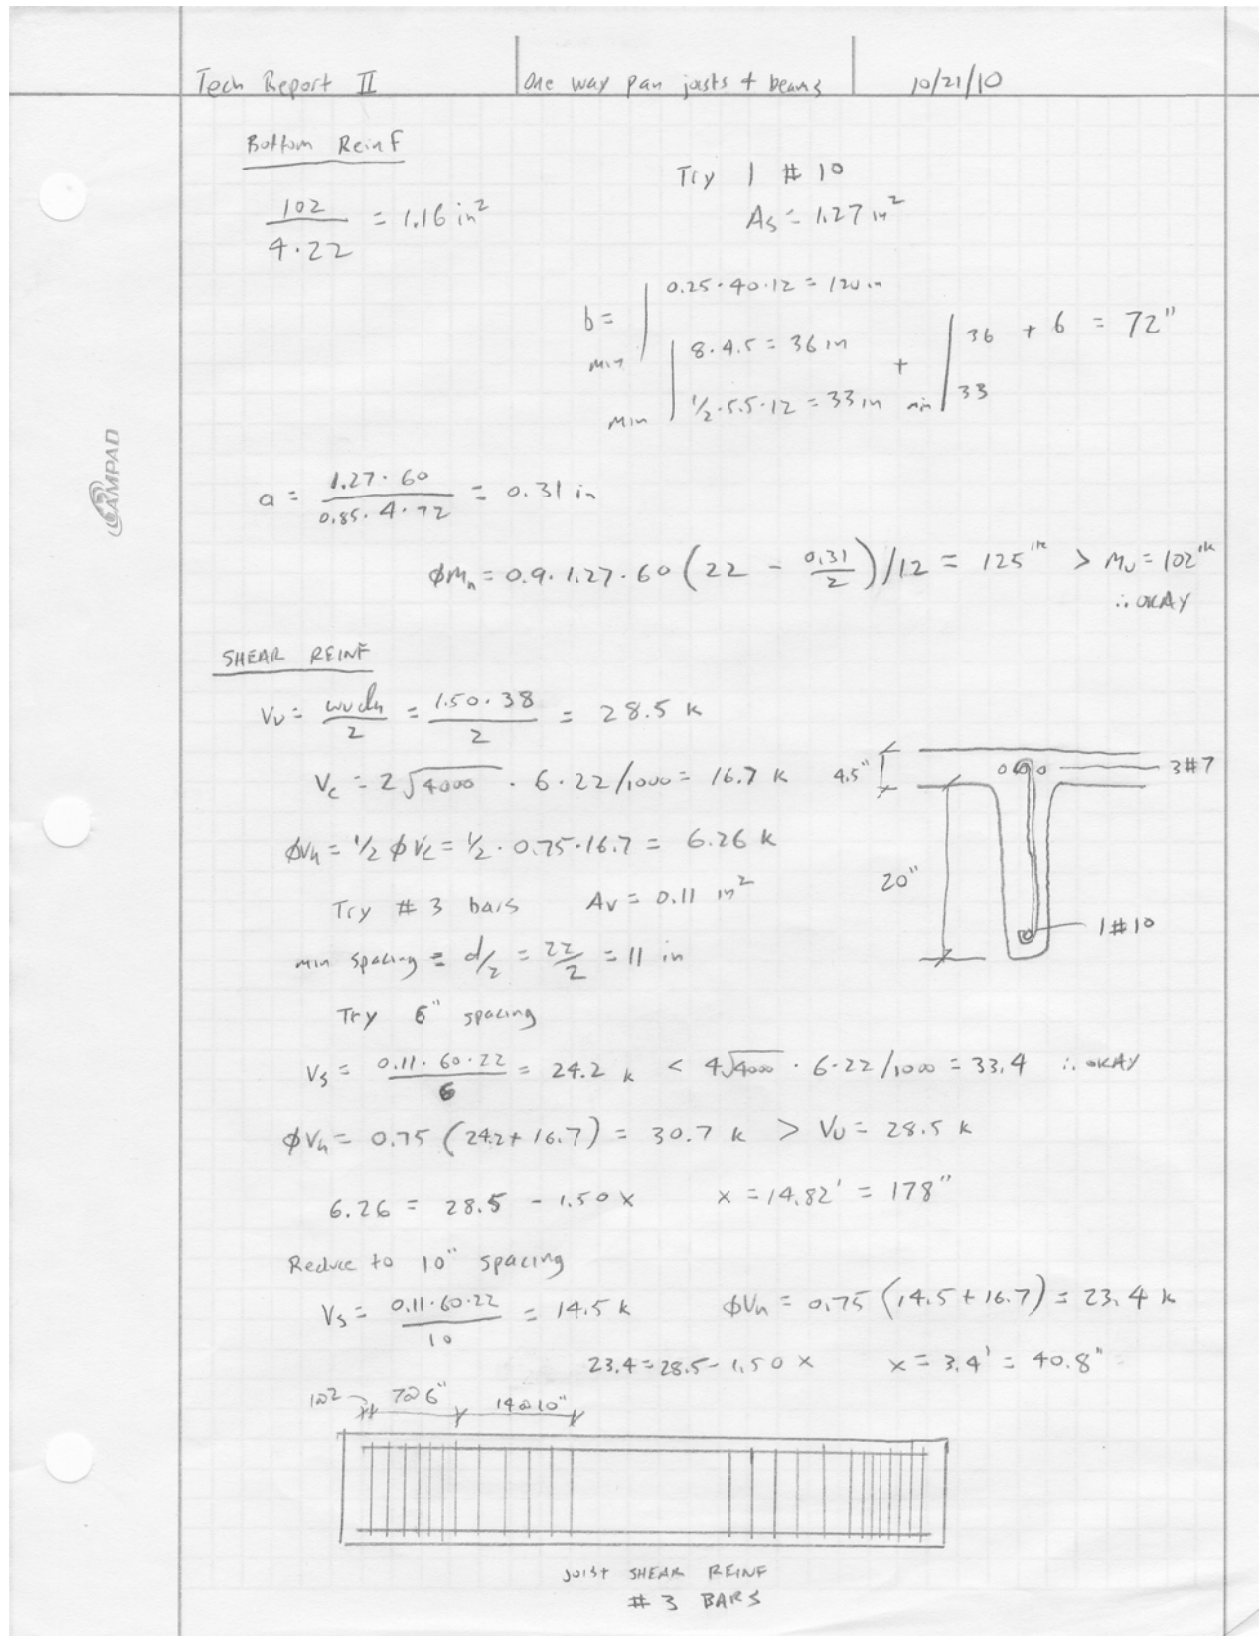 Tech Report II One way pan joists + beams 10/21/10
Bottom Reinf
Try 1 # 10
102 / 4·22 = 1.16 in²
As = 1.27 in²
b = min | 0.25·40·12 = 120 in
min | 8·4.5 = 36 in + min | 36 + 6 = 72"
1/2·5.5·12 = 33 in 33
AMPAD
a = 1.27·60 / 0.85·4·72 = 0.31 in
ϕMn = 0.9·1.27·60 (22 - 0.31/2)/12 = 125 'k > Mu = 102 'k
∴ OKAY
SHEAR REINF
Vu = wuln/2 = 1.50·38/2 = 28.5 k
Vc = 2√4000 · 6·22/1000 = 16.7 k
4.5"
3#7
ϕVn = 1/2 ϕVc = 1/2 · 0.75·16.7 = 6.26 k
20"
Try # 3 bars Av = 0.11 in²
1#10
min spacing = d/2 = 22/2 = 11 in
Try 6" spacing
Vs = 0.11·60·22 / 6 = 24.2 k < 4√4000 · 6·22/1000 = 33.4 ∴ OKAY
ϕVn = 0.75 (24.2 + 16.7) = 30.7 k > Vu = 28.5 k
6.26 = 28.5 - 1.50 x x = 14.82' = 178"
Reduce to 10" spacing
Vs = 0.11·60·22 / 10 = 14.5 k ϕVn = 0.75 (14.5 + 16.7) = 23.4 k
23.4 = 28.5 - 1.50 x x = 3.4' = 40.8"
1@2 7@6" 14@10"
JOIST SHEAR REINF
# 3 BARS